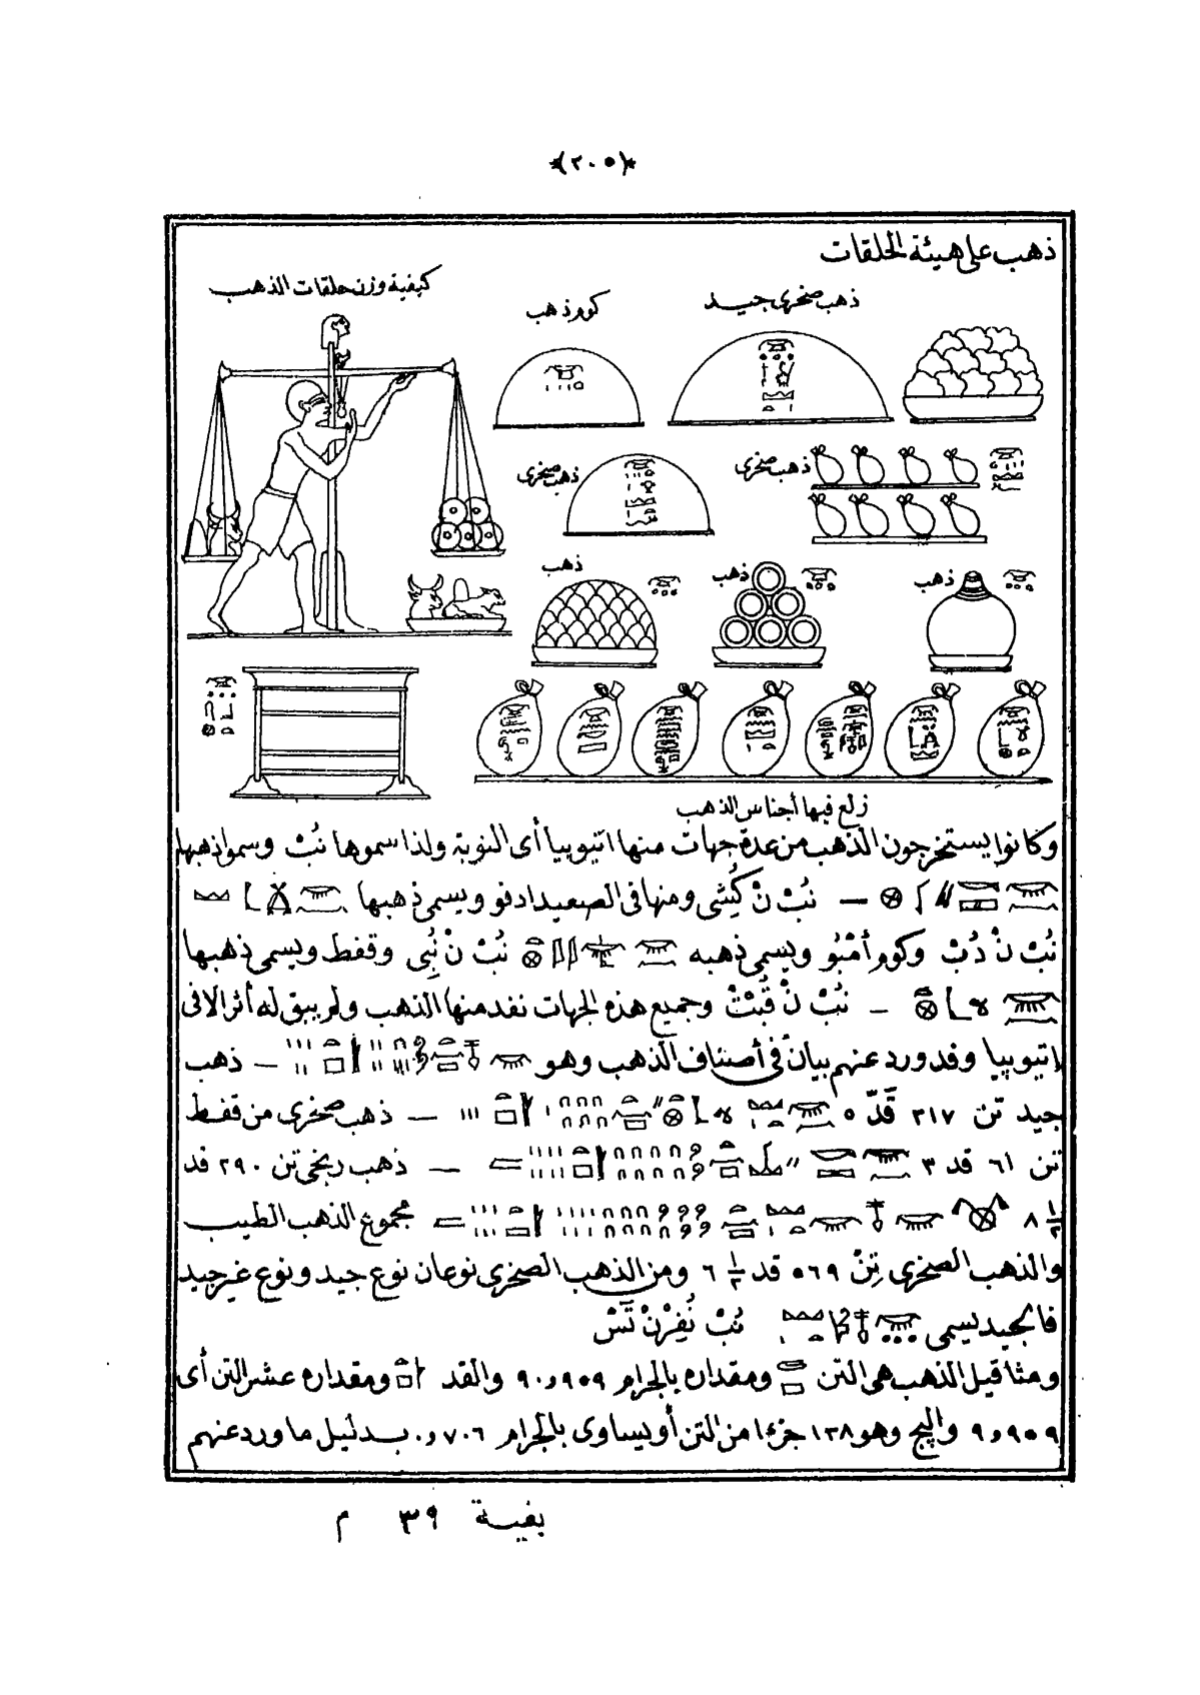 *(٢٠٥)*
ذهب على هيئة الحلقات
كيفية وزن حلقات الذهب
كوم ذهب
ذهب صخرى جيد
ذهب صخرى
ذهب صخرى
ذهب
ذهب
ذهب
زلع فيها أجناس الذهب
وكانوا يستخرجون الذهب من عدة جهات منها اتيوبيا أى النوبة ولذا سموها نُبْ وسموا ذهبها
— نُبْ نْ كِيشى ومنها فى الصعيد ادفو ويسمى ذهبها
نُبْ نْ دُبْ وكوم أمْبُو ويسمى ذهبه نُبْ نْ نُبِى وقفط ويسمى ذهبها
— نُبْ نْ قُبْتْ وجميع هذه الجهات نفد منها الذهب ولم يبق له أثر الا فى
اتيوبيا وقد ورد عنهم بيان فى أصناف الذهب وهو — ذهب
جيد تن ٢١٧ قَدّ ٥ — ذهب صخرى من قفط
تن ٦١ قد ٣ — ذهب ريخى تن ٢٩٠ قد
٨ ١/٢ مجموع الذهب الطيب
والذهب الصخرى تِنْ ٥٦٩ قد ١/٢ ٦ ومن الذهب الصخرى نوعان نوع جيد ونوع غير جيد
فالجيد يسمى نُبْ نُفِرْ نْ تَسْ
ومثاقيل الذهب هى التن ومقداره بالجرام ٩٠٫٩٥٩ والقد ومقداره عشر التن أى
٩٫٠٩٥٩ والپج وهو ١٢٨ جزءا من التن أو يساوى بالجرام ٠٫٧٠٦ بدليل ما ورد عنهم
بغية ٣٩ م